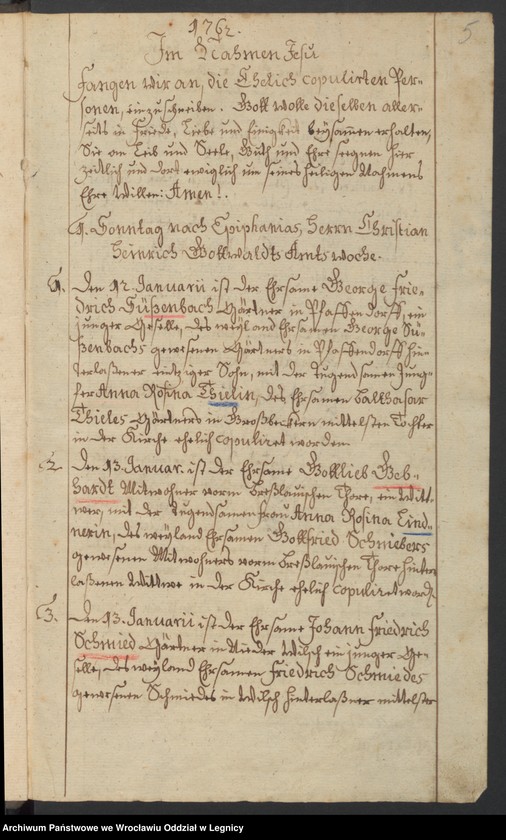 1762.
5
Im Nahmen Jesu
fangen wir an, die Ehelich copulirten Per-
sonen, einzuschreiben. Gott wolle dieselben aller-
seits in Friede, Liebe und Einigkeit beysamen erhalten,
Sie an Leib und Seele, Guth und Ehre seegnen hier
zeitlich und dort ewiglich um seines heiligen Nahmens
Ehre Willen: Amen!.
1. Sonntag nach Epiphanias, Herrn Christian
Heinrich Gottwaldts Amts woche.
1. Den 12. Januarii ist der Ehrsame George Frie-
drich Süßenbach Gärtner in Pfaffendorff, ein
junger Geselle, des weyland Ehrsamen George Sü-
ßenbachs gewesenen Gärtners in Pfaffendorff hin-
terlaßener eintziger Sohn, mit der Tugendsamen Jung-
fer Anna Rosina Thielin, des Ehrsamen Balthasar
Thieles Gärtners in Großbeckern mittelsten Tochter
in der Kirche ehelich copuliret worden.
2. Den 13. Januar. ist der Ehrsame Gottlieb Geb-
hardt Mitwohner vorm Breßlauischen Thore, ein Witt-
wer, mit der Tugendsamen Frau Anna Rosina Lind-
nerin, des weyland Ehrsamen Gottfried Schniebers
gewesenen Mitwohners vorm Breßlauischen Thore hinter-
laßenen Wittwe in der Kirche ehelich copuliret word.
3. Den 13. Januarii ist der Ehrsame Johann Friedrich
Schmied Gärtner in Nieder Wilsch ein junger Ge-
selle, des weyland Ehrsamen Friedrich Schmiedes
gewesenen Schmiedes in Wilsch hinterlaßner mittelster
Archiwum Państwowe we Wrocławiu Oddział w Legnicy